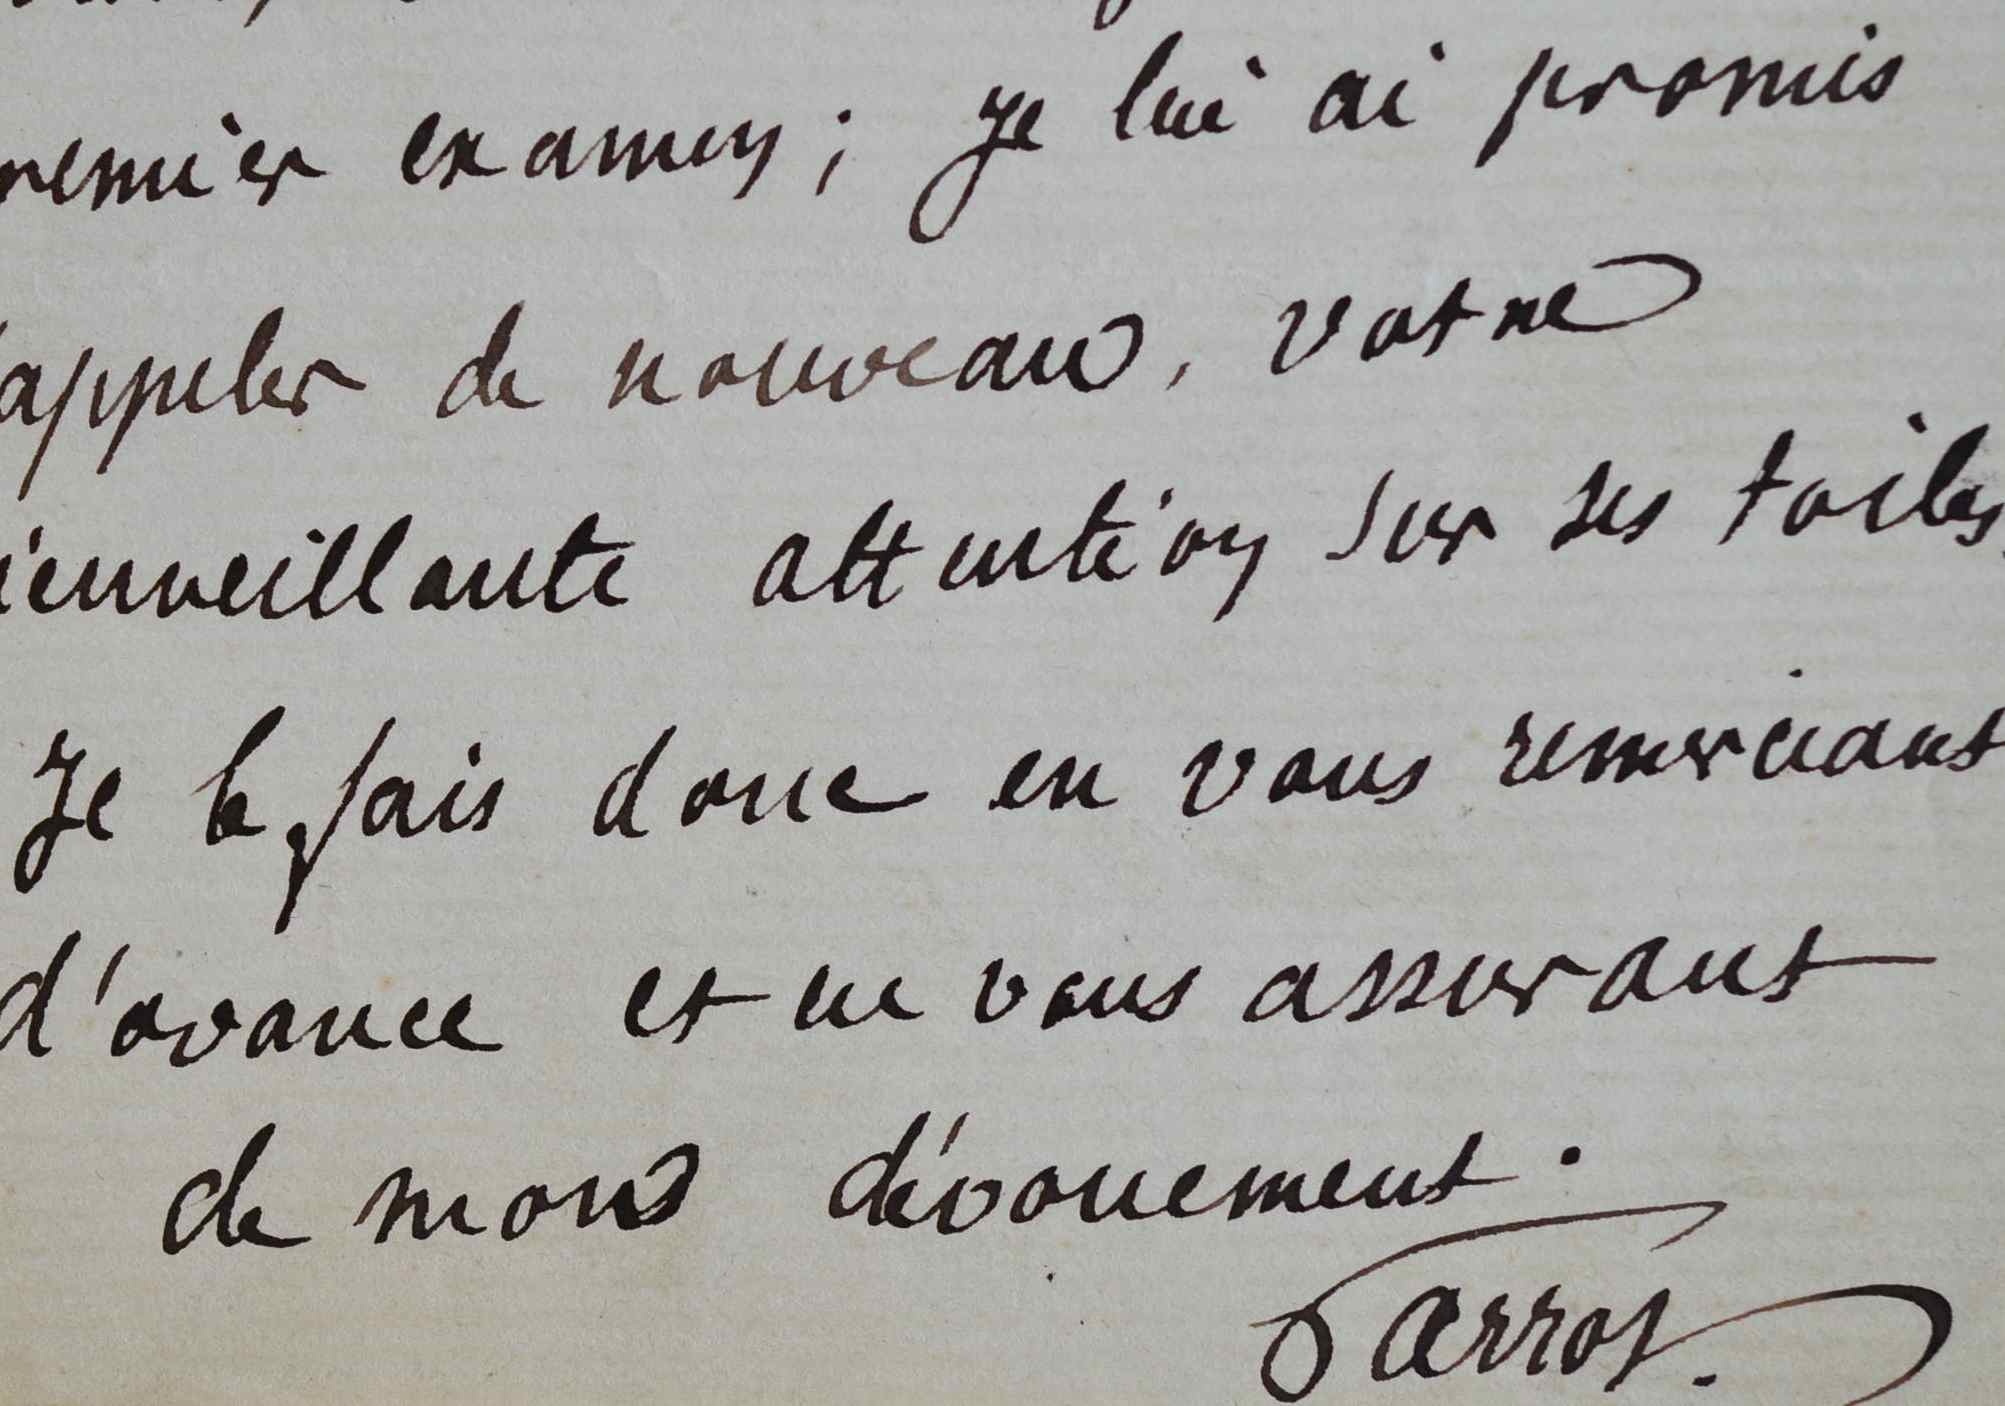 remier examen; Je lui ai promis
appeler de nouveau, votre
ienveillante attention sur ses toiles.
Je le fais donc en vous remerciant
d'avance et en vous assurant
de mon dévouement.
Parrot.